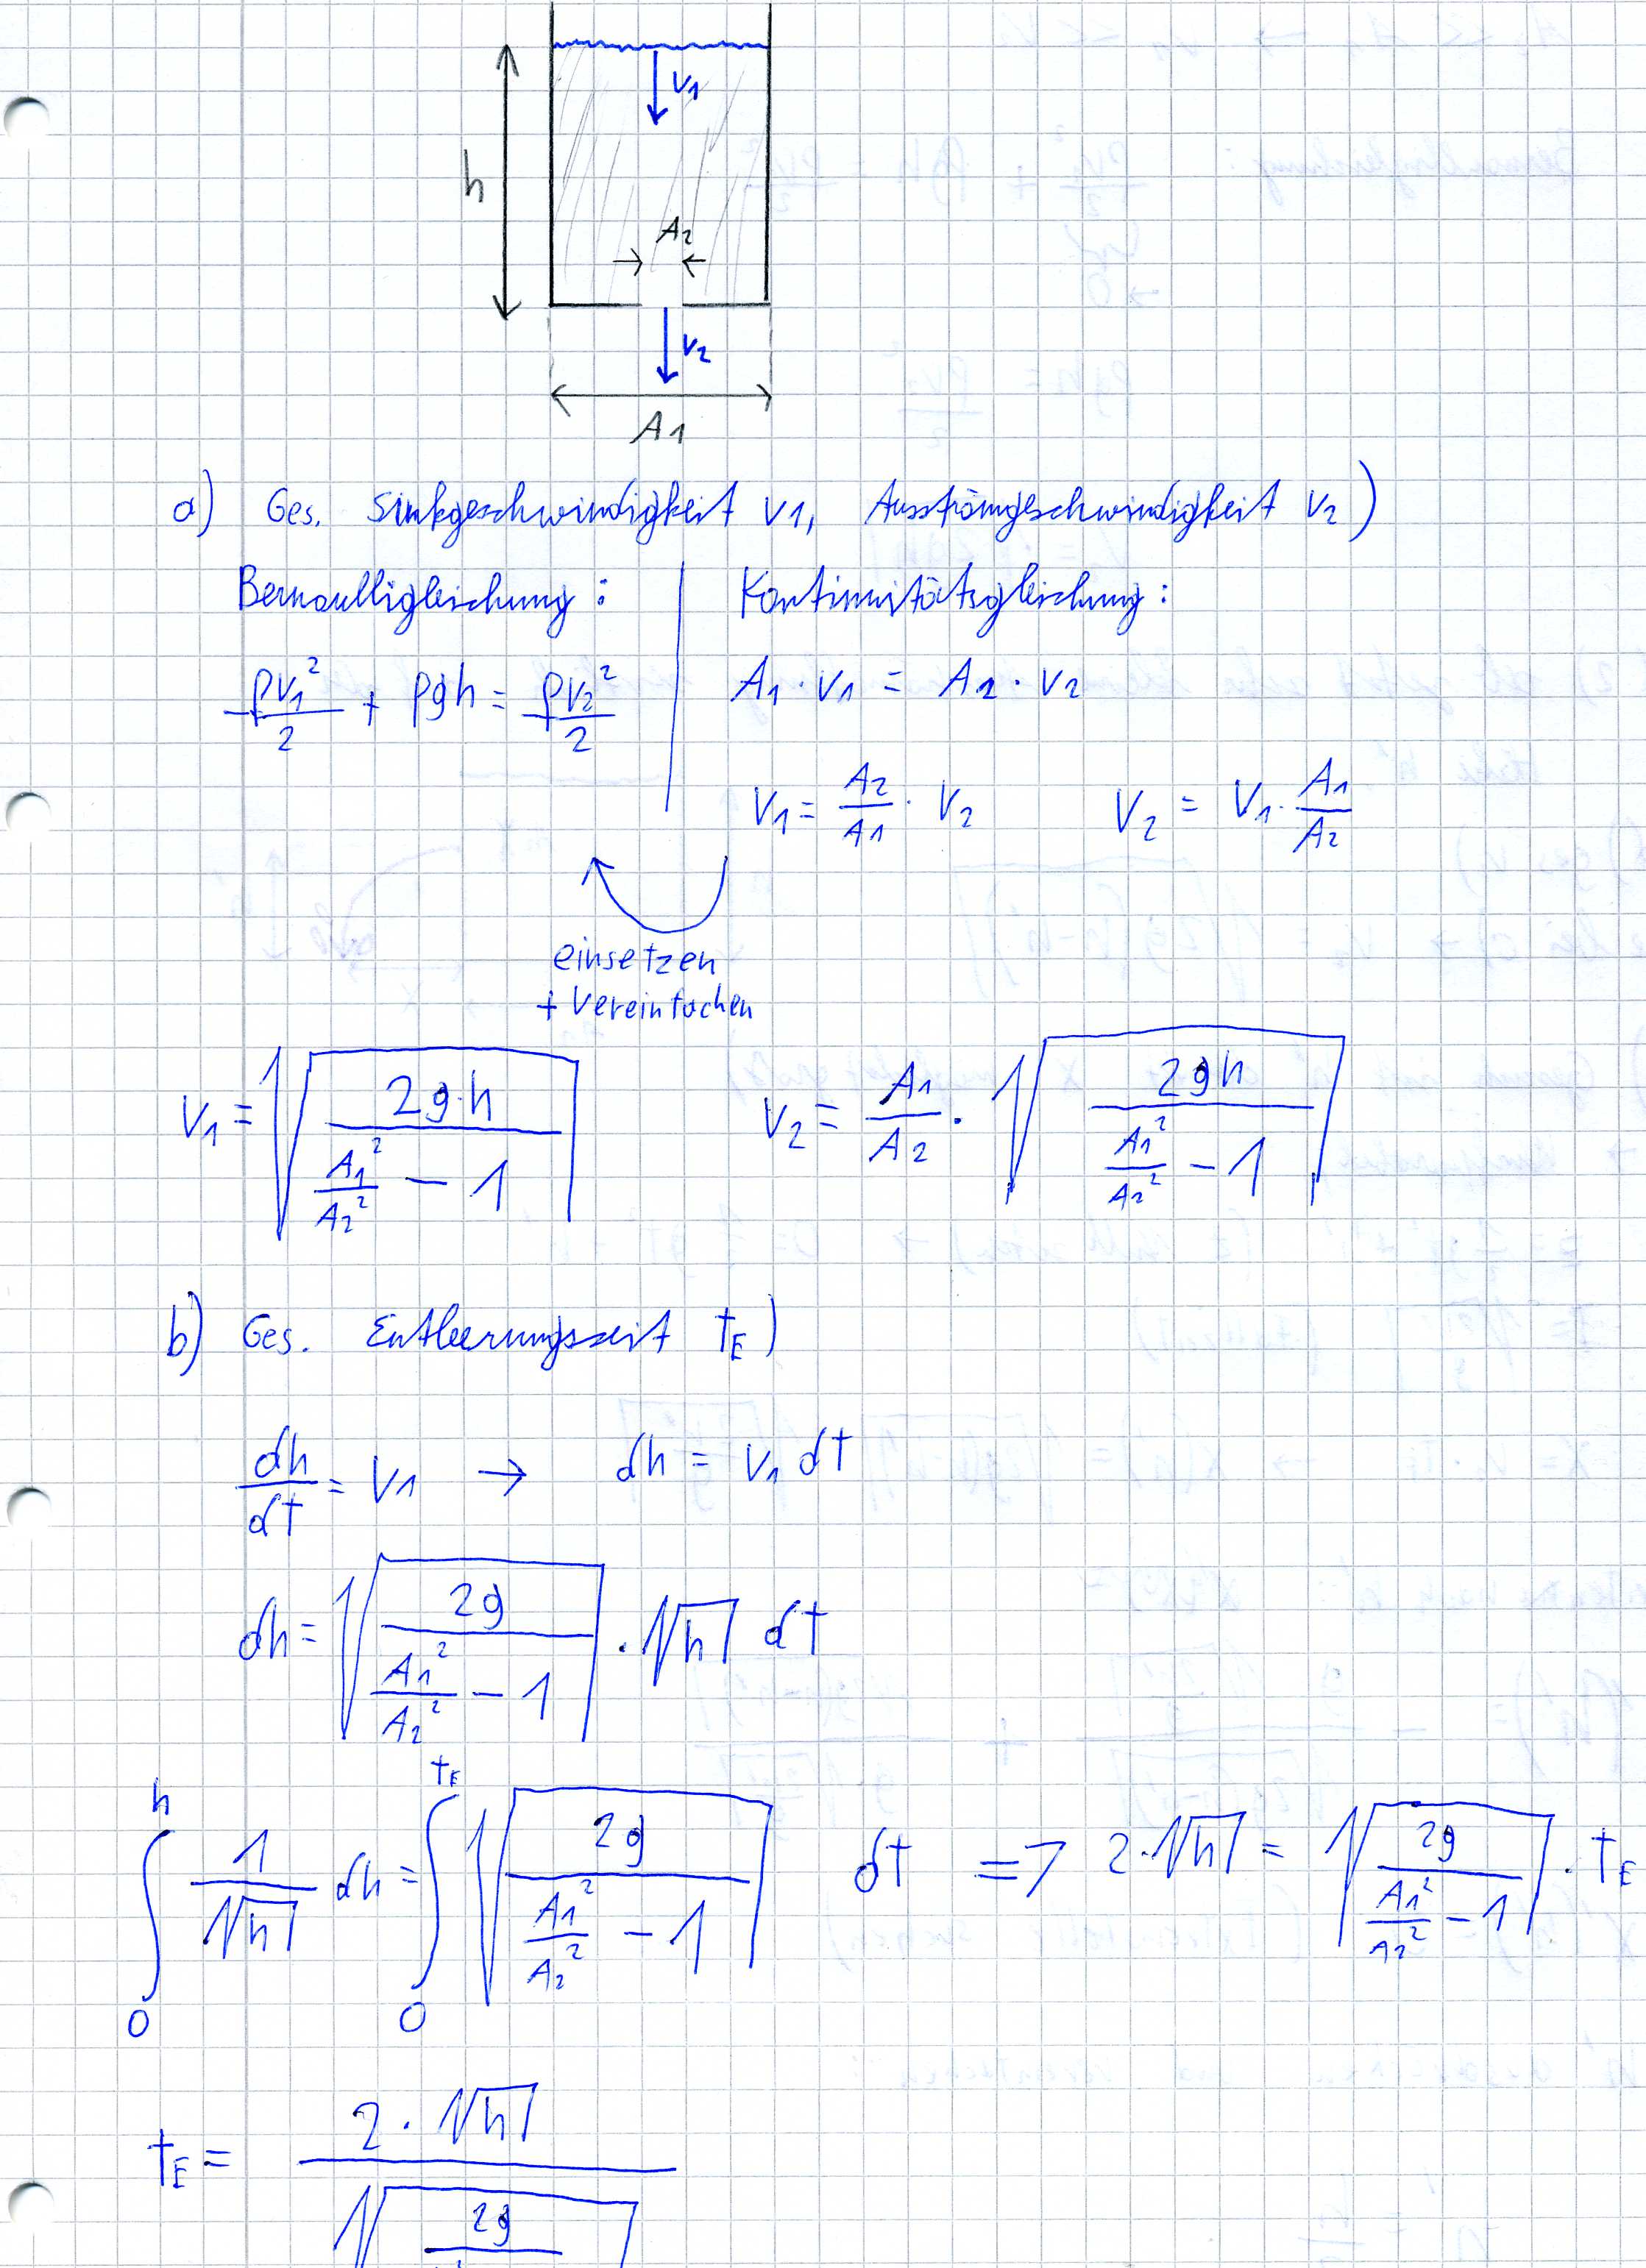 v1
h
A2
v2
A1
a) Ges. Sinkgeschwindigkeit v1, Ausströmgeschwindigkeit v2)
Bernoulligleichung: Kontinuitätsgleichung:
ρv1²/2 + ρgh = ρv2²/2
A1 · v1 = A2 · v2
v1 = A2/A1 · v2 v2 = v1 · A1/A2
einsetzen
+ Vereinfachen
v1 = √(2g·h / (A1²/A2² − 1)) v2 = A1/A2 · √(2gh / (A1²/A2² − 1))
b) Ges. Entleerungszeit tE)
dh/dt = v1 → dh = v1 dt
dh = √(2g / (A1²/A2² − 1)) · √h dt
∫₀ʰ 1/√h dh = ∫₀^tE √(2g / (A1²/A2² − 1)) dt => 2·√h = √(2g / (A1²/A2² − 1)) · tE
tE = 2·√h / √(2g